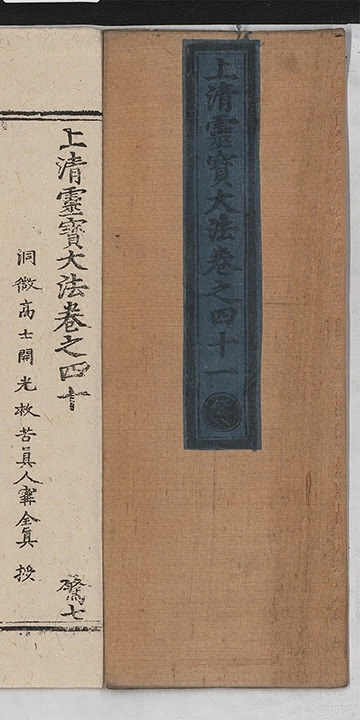 上清靈寶大法卷之四十一
上清靈寶大法卷之四十
洞微高士開光救苦眞人寗全眞 授
驚七